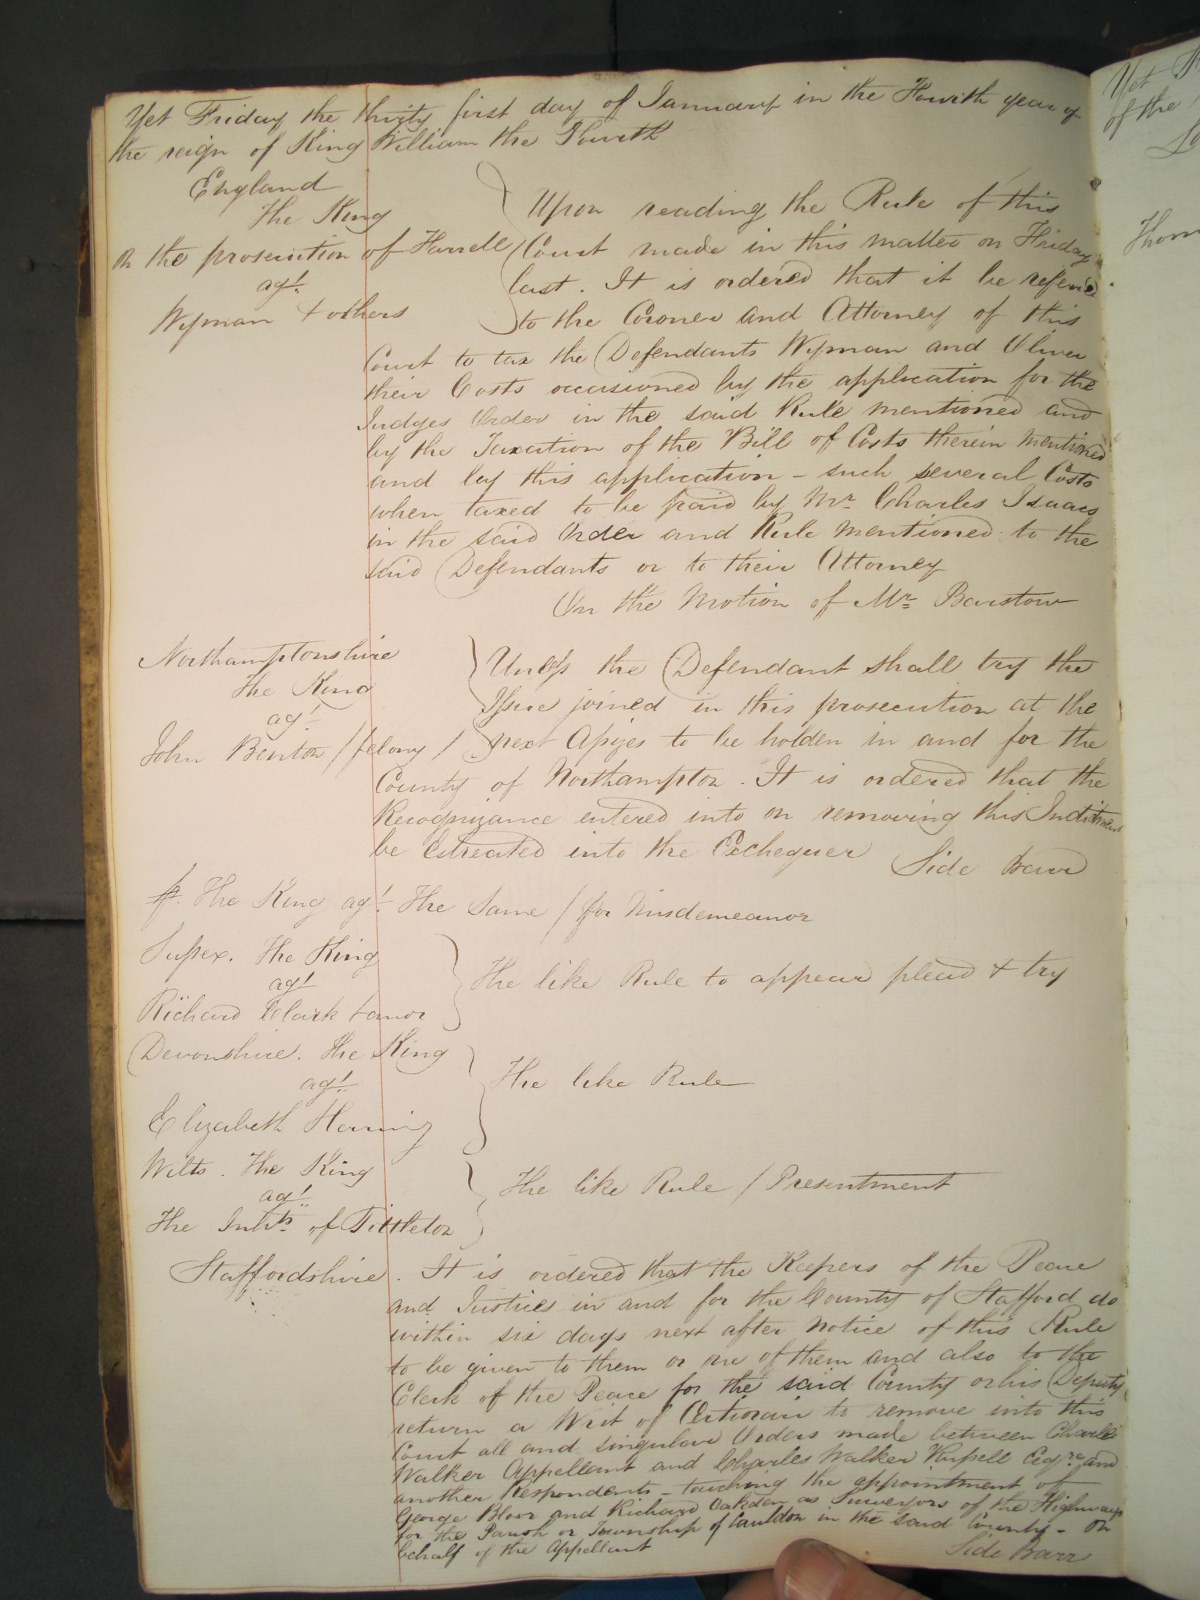 Yet Friday the thirty first day of January in the Fourth year of
the reign of King William the Fourth
England
The King
on the prosecution of Farrell
agt.
Wyman + others
Upon reading the Rule of this
Court made in this matter on Friday
last. It is ordered that it be referred
to the Coroner and Attorney of this
Court to tax the Defendants Wyman and Oliver
their Costs occasioned by the application for the
Judges Order in the said Rule mentioned and
by the Taxation of the Bill of Costs therein mentioned
and by this application - such several Costs
when taxed to be paid by Mr. Charles Isaacs
in the said Order and Rule mentioned to the
said Defendants or to their Attorney
On the Motion of Mr. Barstow
Northamptonshire
The King
agt.
John Benton / felony /
Unless the Defendant shall try the
Issue joined in this prosecution at the
next Assizes to be holden in and for the
County of Northampton. It is ordered that the
Recognizance entered into on removing this Indictment
be Estreated into the Exchequer
Side Barr
The King agt. The Same / for Misdemeanor
Sussex. The King
agt
Richard Clark + anor
The like Rule to appear plead + try
Devonshire. The King
agt.
Elizabeth
The like Rule
Wilts. The King
agt.
The Inhts. of
The like Rule / Presentment
Staffordshire. It is ordered that the Keepers of the Peace
and Justices in and for the County of Stafford do
within six days next after Notice of this Rule
to be given to them or one of them and also to the
Clerk of the Peace for the said County or his Deputy
return a Writ of Certiorari to remove into this
Court all and singular Orders made between Charles
Walker Appellant and Charles Walker Russell Esqre. and
another Respondents - touching the appointment of
George Bloor and Richard Oakden as Surveyors of the Highways
for the Parish or Township of Cauldon in the said County - On
behalf of the Appellant
Side Barr
Yet
of the